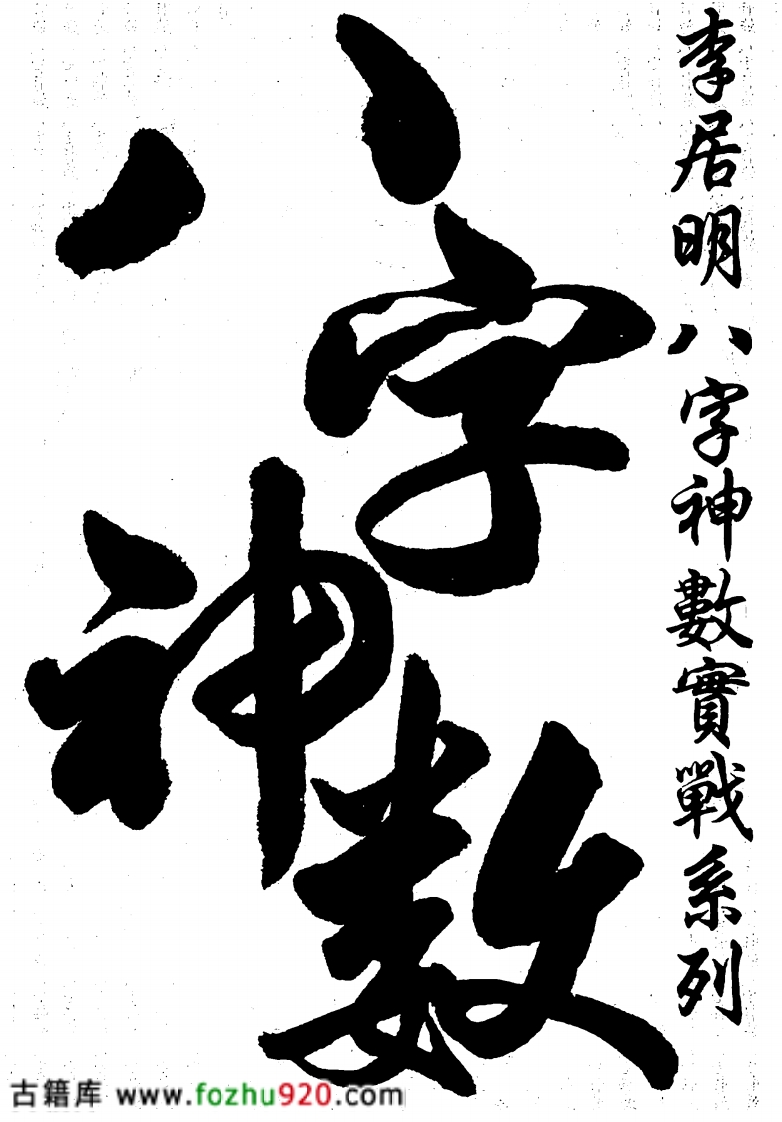 李居明八字神數實戰系列
八字
神数
古籍库 www.fozhu920.com